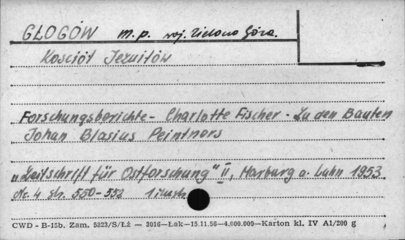 GŁOGÓW m.p. woj. Zielona Góra.
Kościół Jezuitów
Forschungsberichte - Charlotte Fischer - Zu den Bauten
Johan Blasius Peintners
"Zeitschrift für Ostforschung" II, Marburg a. Lahn 1953
Nr. 4 str. 550-552 1 ilustr.
CWD - B-15b. Zam. 5323/S/Łż — 2016—Łak—15.11.56—4.000.000—Karton kl. IV A1/200 g